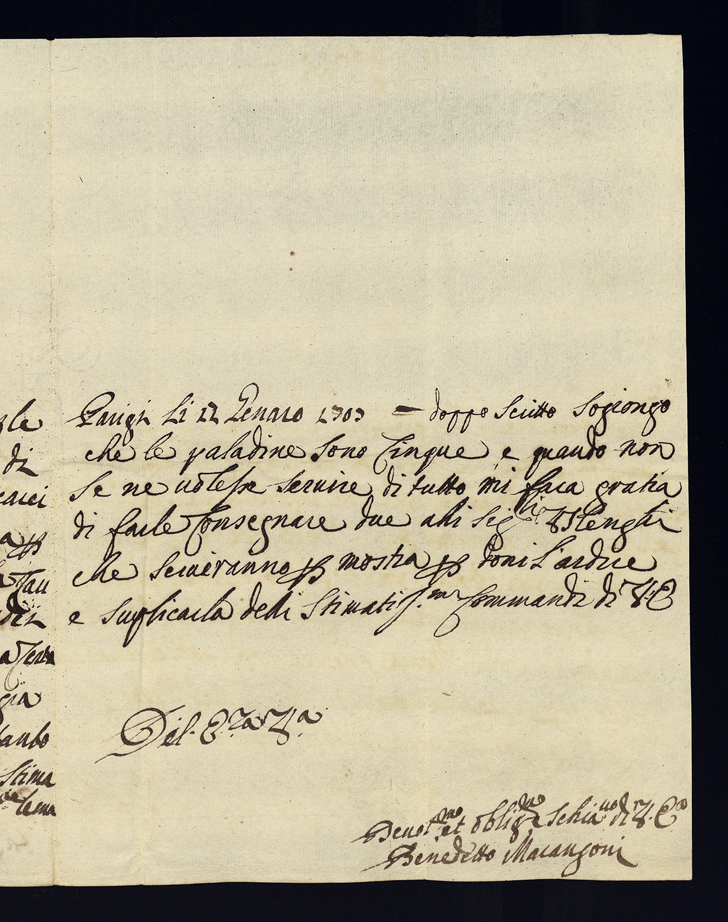 gle
di
carci
a
Tau
gia
Stima
Parigi Li 12 Genaro 1703 — doppo scritto sogiongo
che le paladine sono Cinque e quando non
se ne volesse servire di tutto mi faca gratia
di farle Consegnare due alli Sig.li
che serviranno p mostra p doni L'ardire
e suplicarla delli Stimatiss.mi Commandi di V.E
Del. E.za V.a
Devot.mo et oblig.mo Schiavo di V.E.a
Benedetto Marangoni